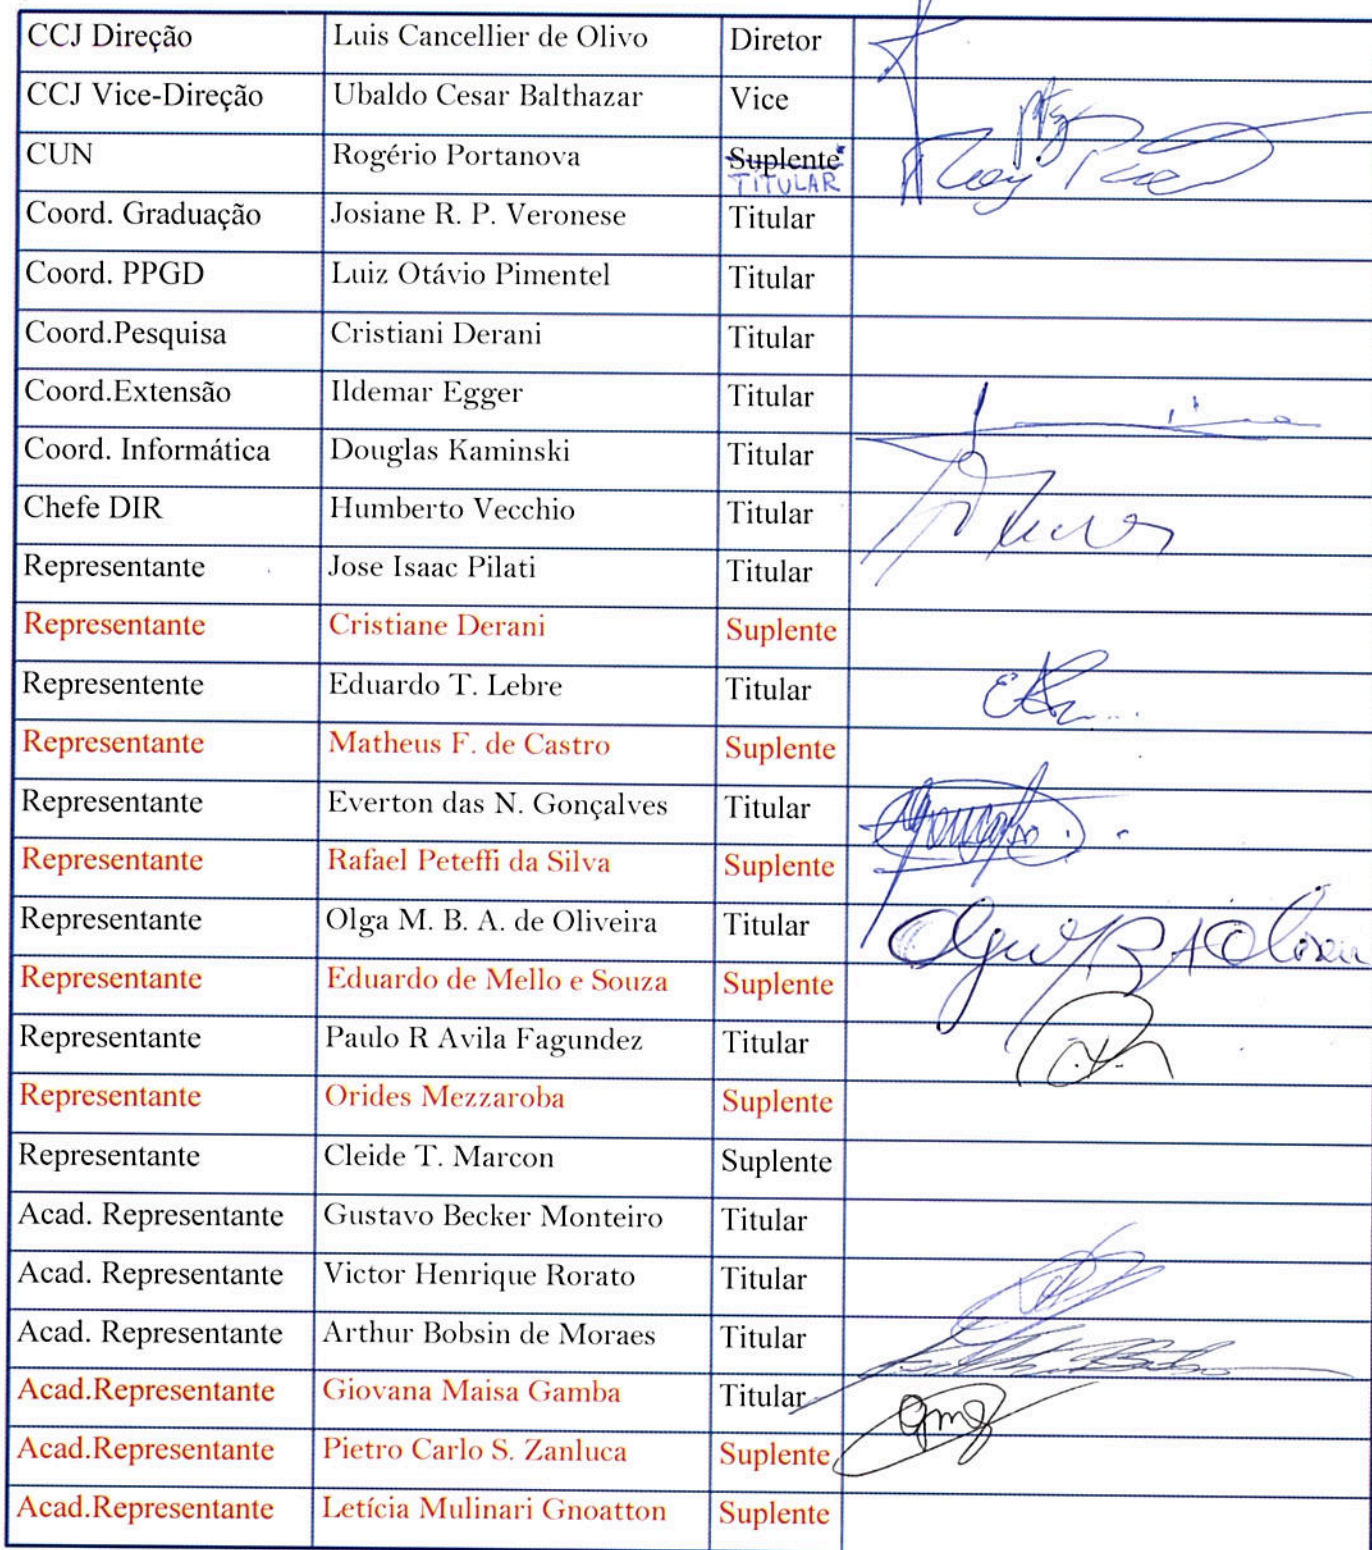 CCJ Direção Luis Cancellier de Olivo Diretor
CCJ Vice-Direção Ubaldo Cesar Balthazar Vice
CUN Rogério Portanova Suplente
TITULAR
Coord. Graduação Josiane R. P. Veronese Titular
Coord. PPGD Luiz Otávio Pimentel Titular
Coord.Pesquisa Cristiani Derani Titular
Coord.Extensão Ildemar Egger Titular
Coord. Informática Douglas Kaminski Titular
Chefe DIR Humberto Vecchio Titular
Representante Jose Isaac Pilati Titular
Representante Cristiane Derani Suplente
Representente Eduardo T. Lebre Titular
Representante Matheus F. de Castro Suplente
Representante Everton das N. Gonçalves Titular
Representante Rafael Peteffi da Silva Suplente
Representante Olga M. B. A. de Oliveira Titular
Representante Eduardo de Mello e Souza Suplente
Representante Paulo R Avila Fagundez Titular
Representante Orides Mezzaroba Suplente
Representante Cleide T. Marcon Suplente
Acad. Representante Gustavo Becker Monteiro Titular
Acad. Representante Victor Henrique Rorato Titular
Acad. Representante Arthur Bobsin de Moraes Titular
Acad.Representante Giovana Maisa Gamba Titular gmg
Acad.Representante Pietro Carlo S. Zanluca Suplente
Acad.Representante Letícia Mulinari Gnoatton Suplente